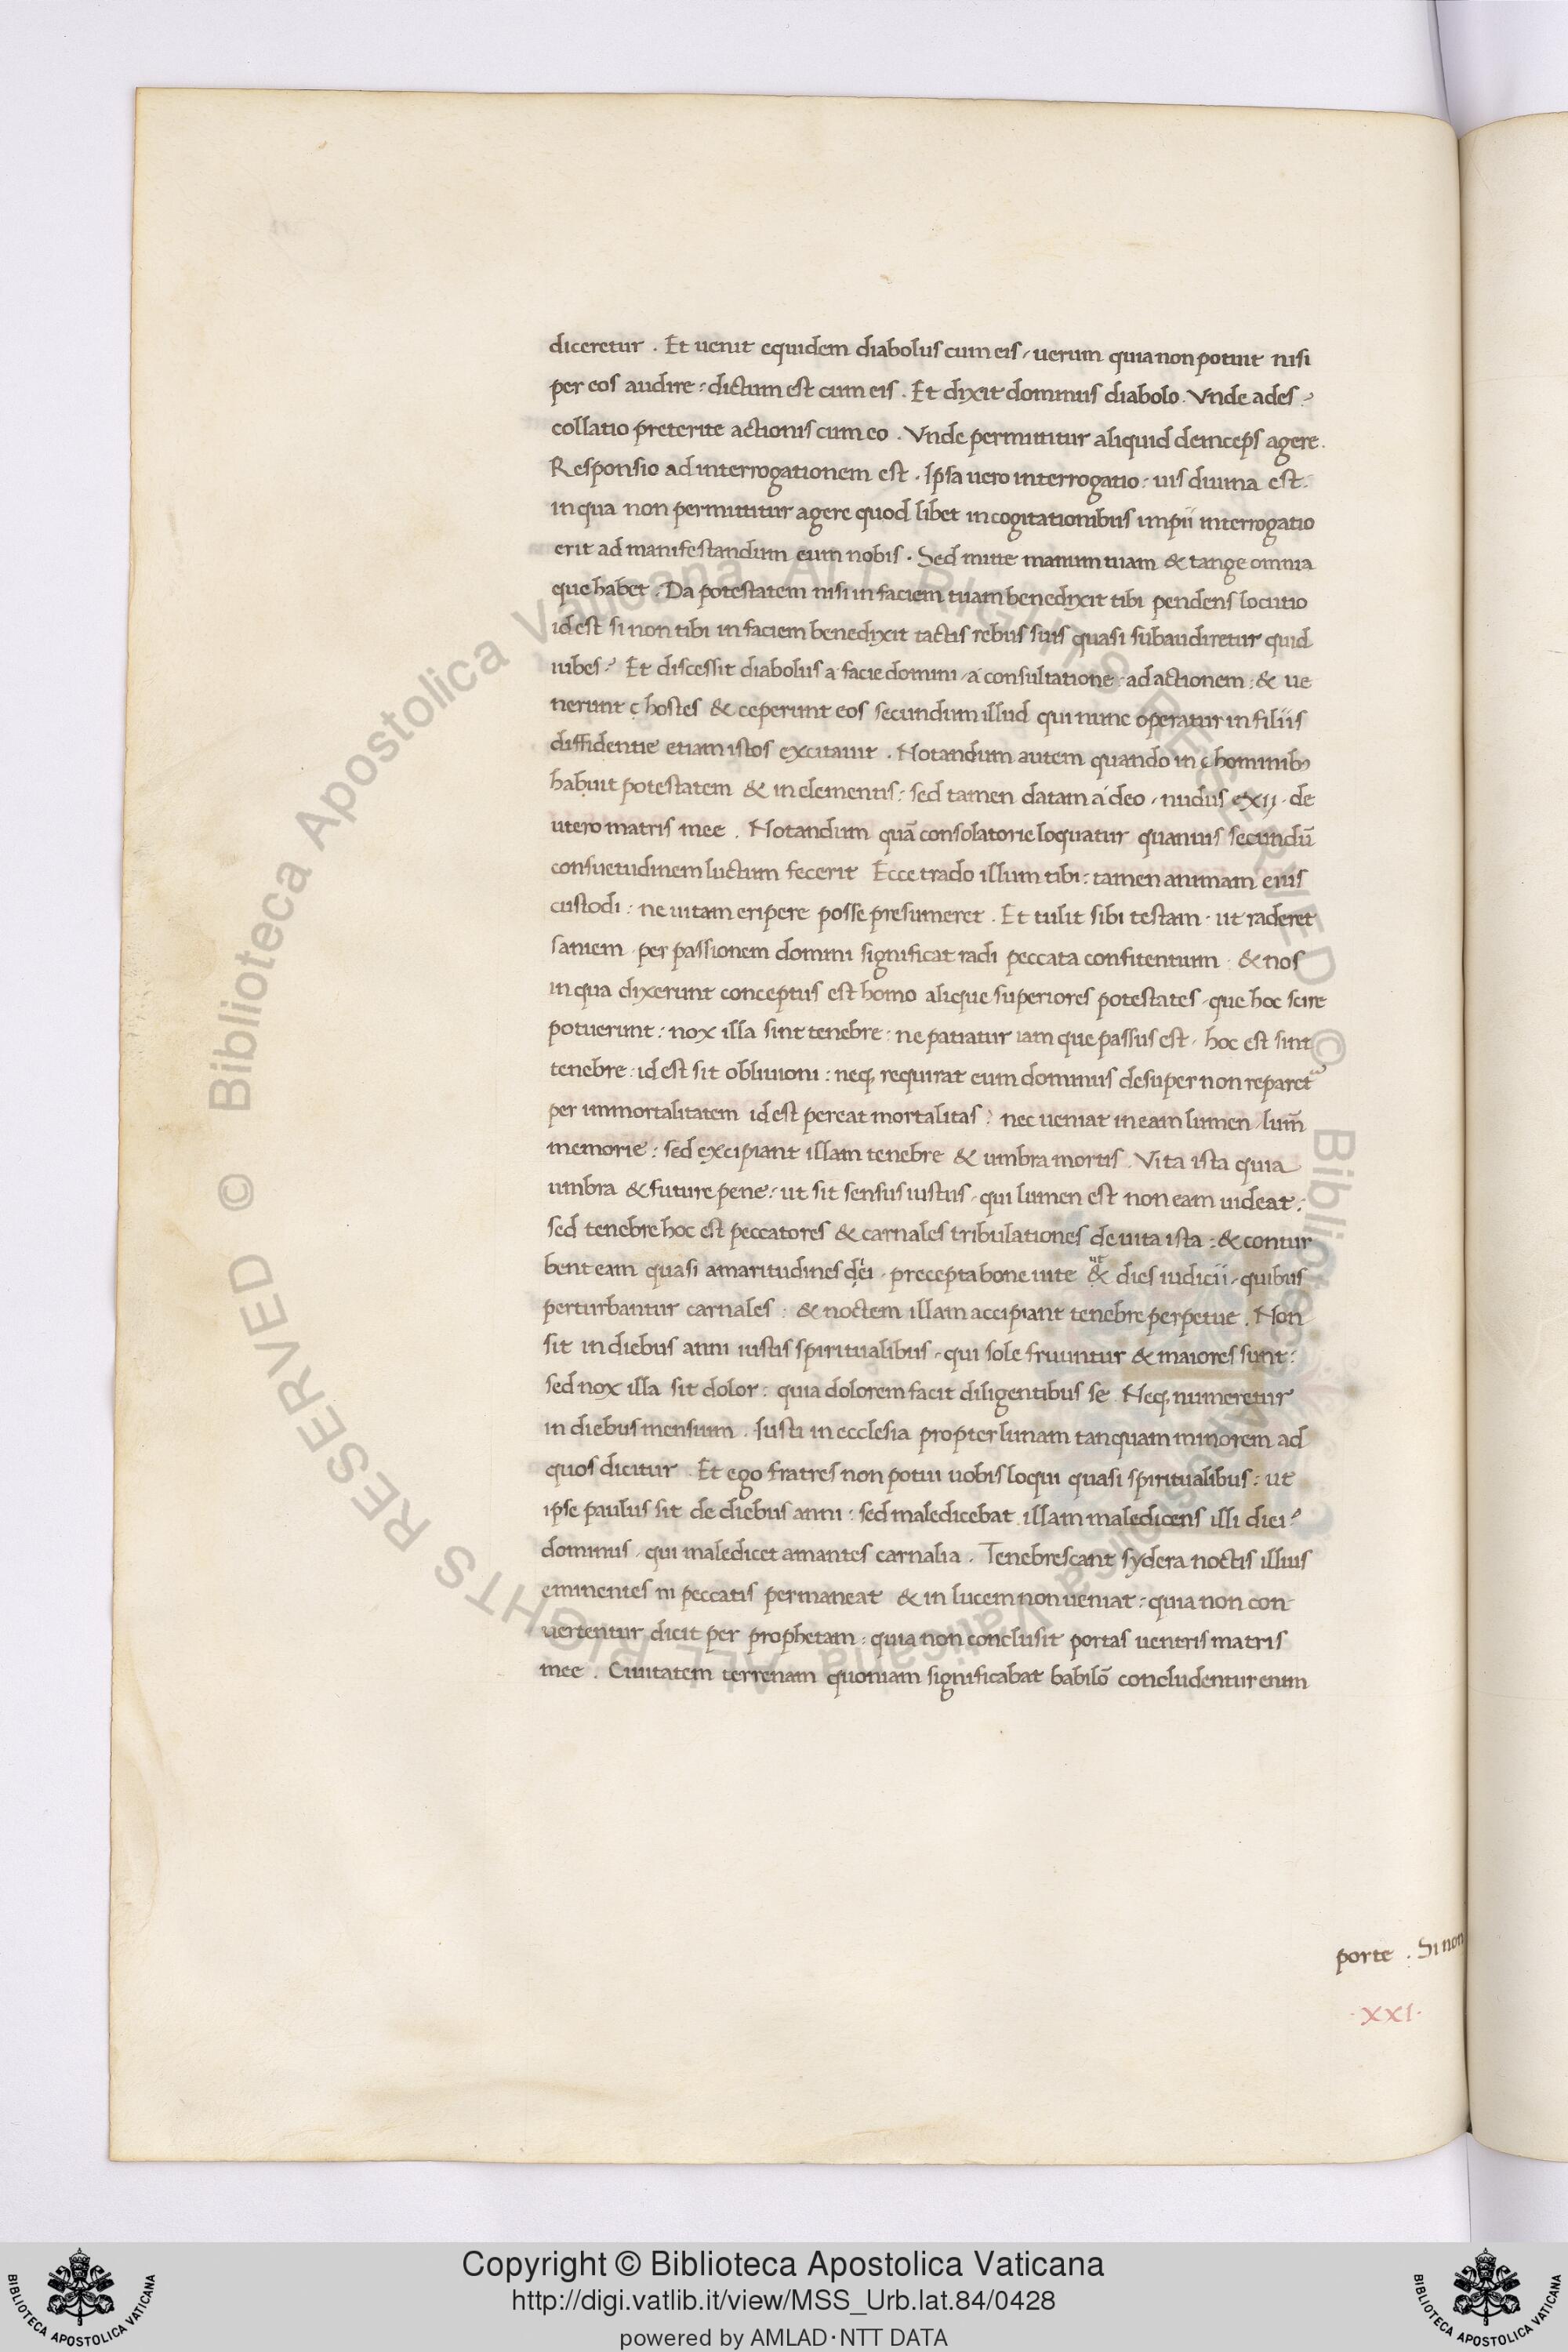 diceretur . Et uenit equidem diabolus cum eis, uerum quia non potuit nisi
per eos audire: dictum est cum eis . Et dixit dominus diabolo. Vnde ades?
collatio preterite actionis cum eo . Vnde permittitur aliquid deinceps agere.
Responsio ad interrogationem est . Ipsa uero interrogatio: uis diuina est:
in qua non permittitur agere quod libet in cogitationibus impii interrogatio
erit ad manifestandum eum nobis . Sed mitte manum tuam & tange omnia
que habet . Da potestatem nisi in faciem tuam benedixit tibi pendens locutio
id est si non tibi in faciem benedixit tactis rebus suis quasi subaudiretur quid
iubes? Et discessit diabolus a facie domini, a consultatione, ad actionem: & ue
nerunt hostes & ceperunt eos secundum illud qui nunc operatur in filiis
diffidentie etiam istos excitauit . Notandum autem quando in hominib;
habuit potestatem & in elementis: sed tamen datam a deo, nudus exij. de
utero matris mee . Notandum quã consolatorie loquatur quamuis secundũ
consuetudinem luctum fecerit Ecce trado illum tibi: tamen animam eius
custodi: ne uitam eripere posse presumeret . Et tulit sibi testam. ut raderet
saniem. per passionem domini significat radi peccata confitentium. & nos
in qua dixerunt conceptus est homo alique superiores potestates, que hoc scire
potuerunt: nox illa sint tenebre: ne patiatur iam que passus est, hoc est sint
tenebre: id est sit obliuioni: neq; requirat eum dominus desuper non reparet
per immortalitatem id est pereat mortalitas: nec ueniat in eam lumen, lum̃
memorie: sed excipiant illam tenebre & umbra mortis. Vita ista quia
umbra & future pene: ut sit sensus iustus, qui lumen est non eam uideat:
sed tenebre hoc est peccatores & carnales tribulationes de uita ista: & contur
bent eam quasi amaritudines dei, precepta bone uite & ut dies iudicii, quibus
perturbantur carnales: & noctem illam accipiant tenebre perpetue . Non
sit in diebus anni iustis spiritualibus, qui sole fruuntur & maiores sunt:
sed nox illa sit dolor: quia dolorem facit diligentibus se. Neq; numeretur
in diebus mensium . Iusti in ecclesia propter lunam tanquam minorem ad
quos dicitur . Et ego fratres non potui uobis loqui quasi spiritualibus: ut
ipse paulus sit de diebus anni: sed maledicebat illam maledicens illi diei?
dominus, qui maledicet amantes carnalia . Tenebrescant sydera noctis illius
eminentes in peccatis permaneat & in lucem non ueniat: quia non con
uertentur dicit per prophetam: quia non conclusit portas uentris matris
mee . Ciuitatem terrenam quoniam significabat babilõ concludentur enim
porte . Si non
·XXI·
© Biblioteca Apostolica Vaticana ALL RIGHTS RESERVED © Biblioteca Apostolica Vaticana ALL RIGHTS RESERVED
BIBLIOTECA APOSTOLICA VATICANA
Copyright © Biblioteca Apostolica Vaticana
http://digi.vatlib.it/view/MSS_Urb.lat.84/0428
powered by AMLAD·NTT DATA
BIBLIOTECA APOSTOLICA VATICANA